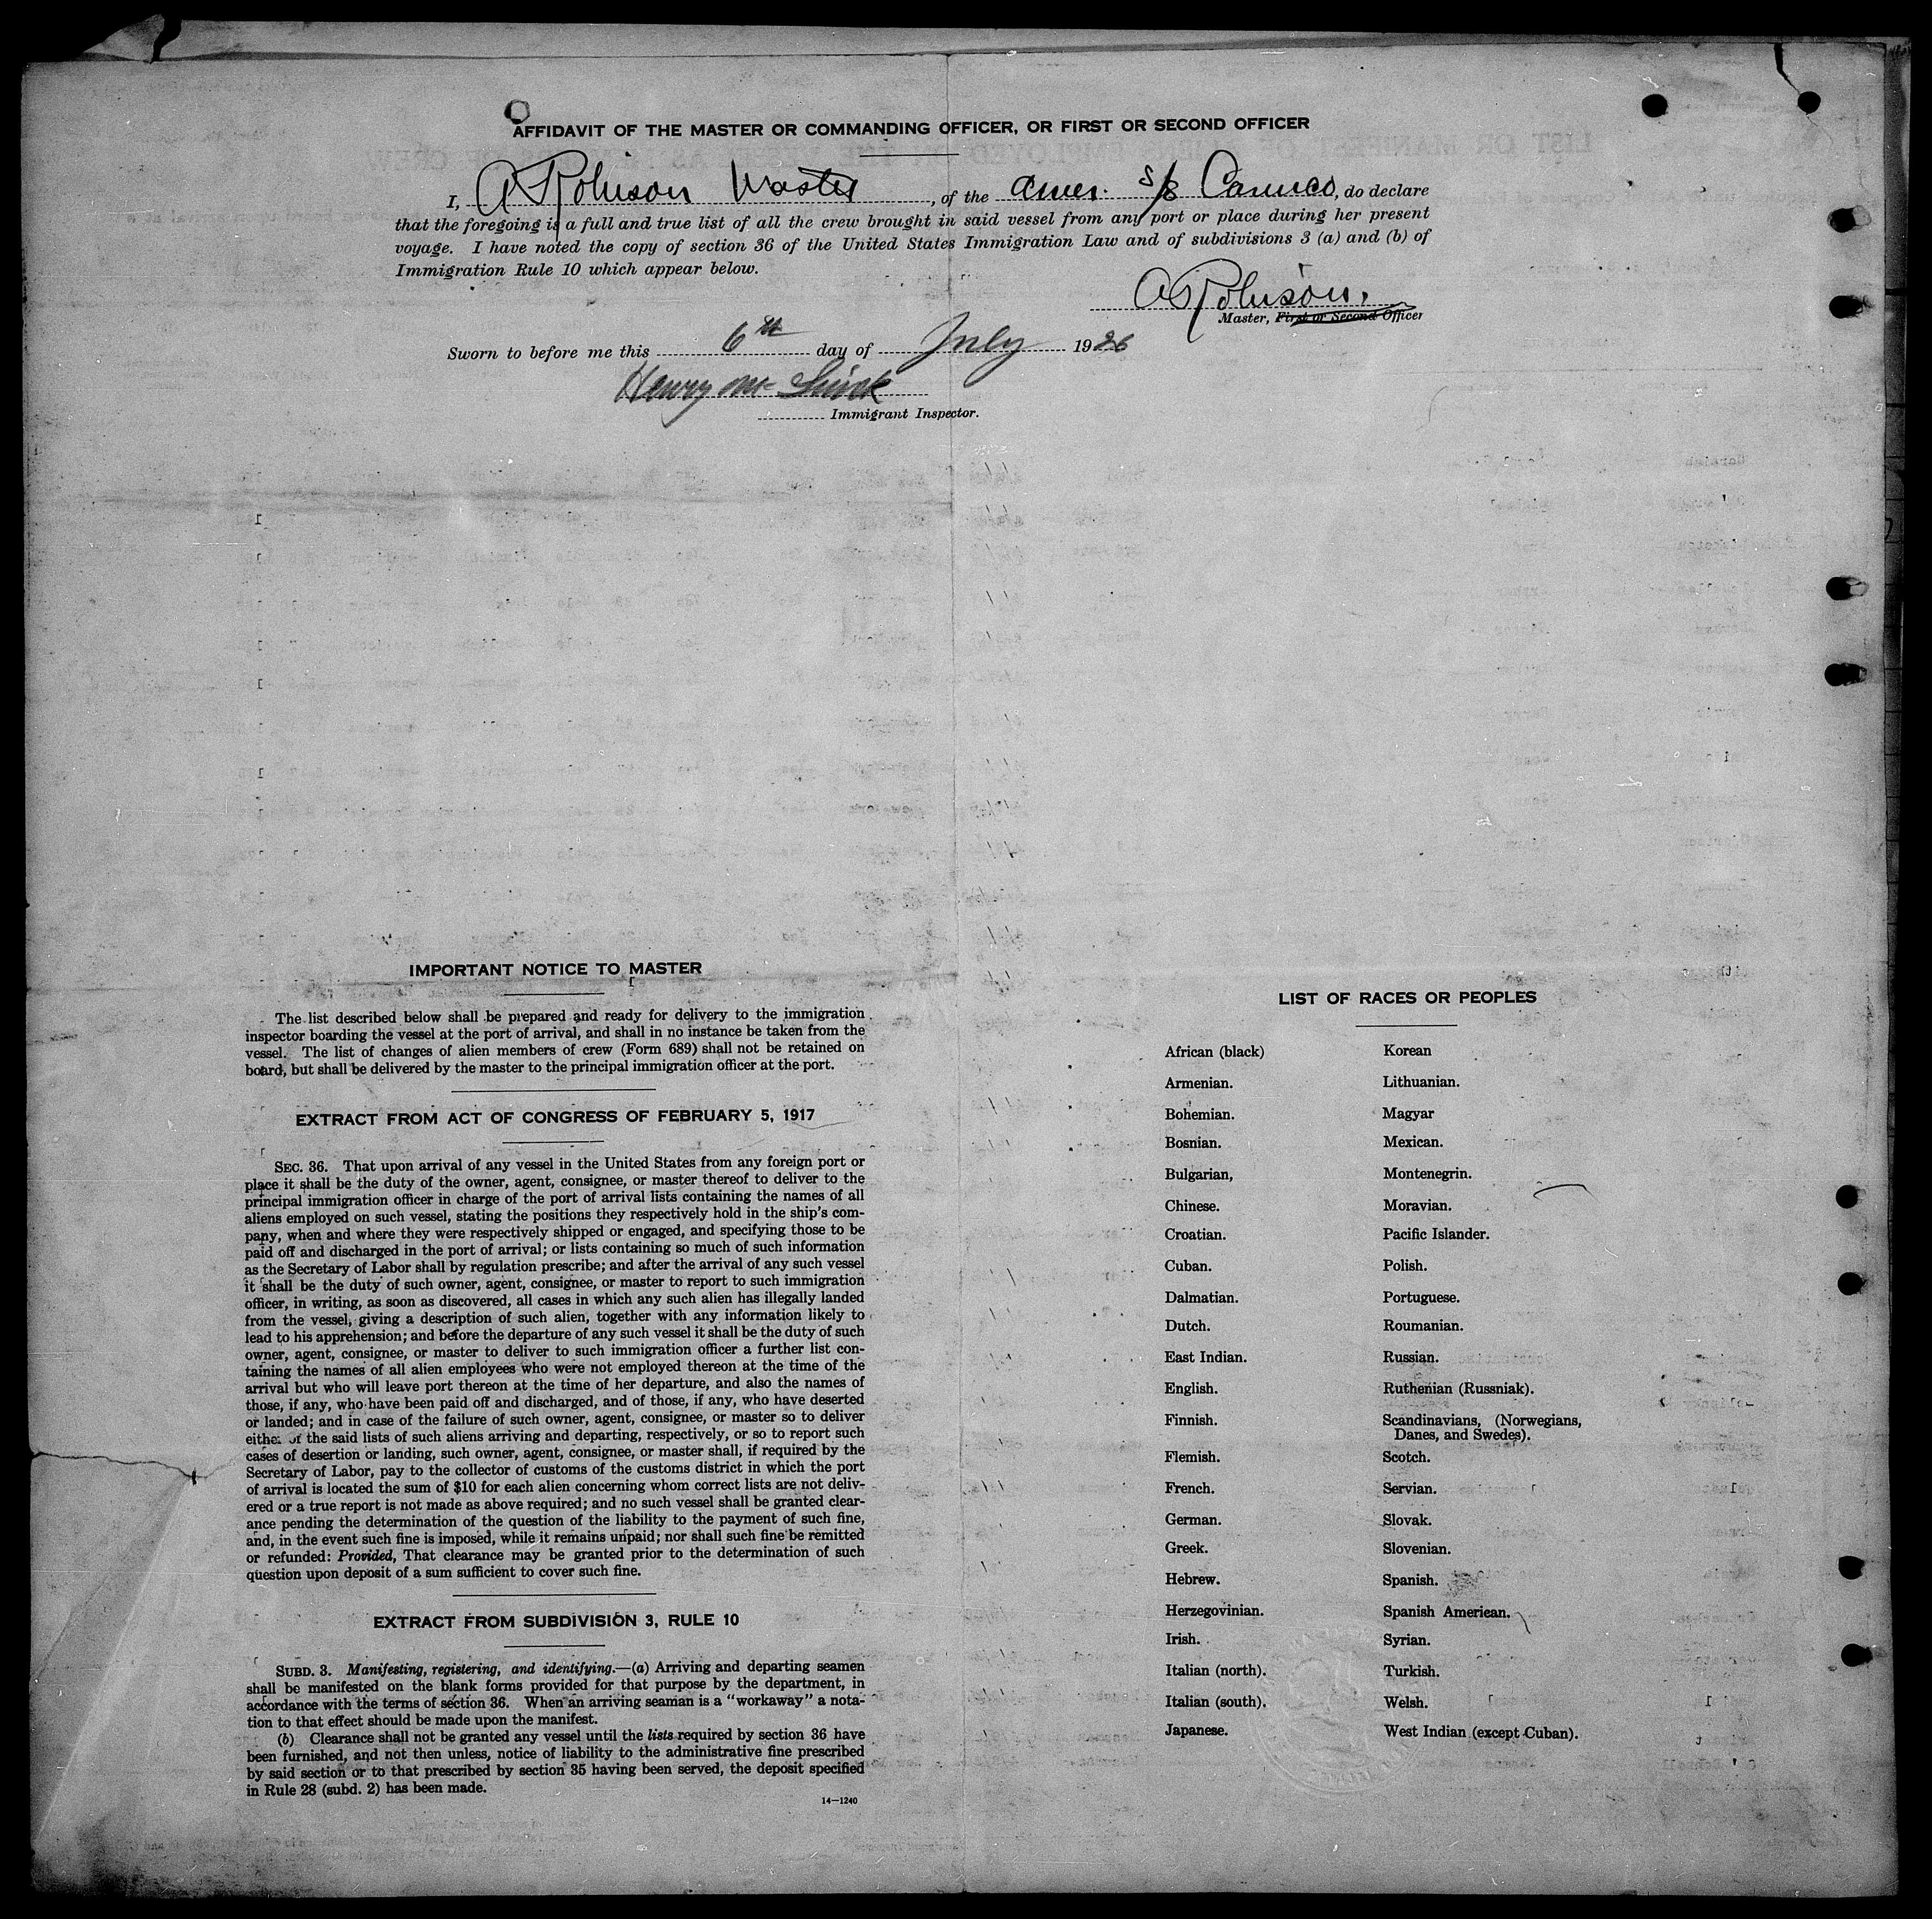 AFFIDAVIT OF THE MASTER OR COMMANDING OFFICER, OR FIRST OR SECOND OFFICER
I, A Robinson Master, of the Amer. S/S, do declare
that the foregoing is a full and true list of all the crew brought in said vessel from any port or place during her present
voyage. I have noted the copy of section 36 of the United States Immigration Law and of subdivisions 3 (a) and (b) of
Immigration Rule 10 which appear below.
A Robinson.
Master, First or Second Officer
Sworn to before me this 6th day of July 1926
Henry
Immigrant Inspector.
IMPORTANT NOTICE TO MASTER
The list described below shall be prepared and ready for delivery to the immigration
inspector boarding the vessel at the port of arrival, and shall in no instance be taken from the
vessel. The list of changes of alien members of crew (Form 689) shall not be retained on
board, but shall be delivered by the master to the principal immigration officer at the port.
EXTRACT FROM ACT OF CONGRESS OF FEBRUARY 5, 1917
SEC. 36. That upon arrival of any vessel in the United States from any foreign port or
place it shall be the duty of the owner, agent, consignee, or master thereof to deliver to the
principal immigration officer in charge of the port of arrival lists containing the names of all
aliens employed on such vessel, stating the positions they respectively hold in the ship's com-
pany, when and where they were respectively shipped or engaged, and specifying those to be
paid off and discharged in the port of arrival; or lists containing so much of such information
as the Secretary of Labor shall by regulation prescribe; and after the arrival of any such vessel
it shall be the duty of such owner, agent, consignee, or master to report to such immigration
officer, in writing, as soon as discovered, all cases in which any such alien has illegally landed
from the vessel, giving a description of such alien, together with any information likely to
lead to his apprehension; and before the departure of any such vessel it shall be the duty of such
owner, agent, consignee, or master to deliver to such immigration officer a further list con-
taining the names of all alien employees who were not employed thereon at the time of the
arrival but who will leave port thereon at the time of her departure, and also the names of
those, if any, who have been paid off and discharged, and of those, if any, who have deserted
or landed; and in case of the failure of such owner, agent, consignee, or master so to deliver
either of the said lists of such aliens arriving and departing, respectively, or so to report such
cases of desertion or landing, such owner, agent, consignee, or master shall, if required by the
Secretary of Labor, pay to the collector of customs of the customs district in which the port
of arrival is located the sum of $10 for each alien concerning whom correct lists are not deliv-
ered or a true report is not made as above required; and no such vessel shall be granted clear-
ance pending the determination of the question of the liability to the payment of such fine,
and, in the event such fine is imposed, while it remains unpaid; nor shall such fine be remitted
or refunded: Provided, That clearance may be granted prior to the determination of such
question upon deposit of a sum sufficient to cover such fine.
EXTRACT FROM SUBDIVISION 3, RULE 10
SUBD. 3. Manifesting, registering, and identifying.—(a) Arriving and departing seamen
shall be manifested on the blank forms provided for that purpose by the department, in
accordance with the terms of section 36. When an arriving seaman is a "workaway" a nota-
tion to that effect should be made upon the manifest.
(b) Clearance shall not be granted any vessel until the lists required by section 36 have
been furnished, and not then unless, notice of liability to the administrative fine prescribed
by said section or to that prescribed by section 35 having been served, the deposit specified
in Rule 28 (subd. 2) has been made.
14—1240
LIST OF RACES OR PEOPLES
African (black)
Armenian.
Bohemian.
Bosnian.
Bulgarian,
Chinese.
Croatian.
Cuban.
Dalmatian.
Dutch.
East Indian.
English.
Finnish.
Flemish.
French.
German.
Greek.
Hebrew.
Herzegovinian.
Irish.
Italian (north).
Italian (south).
Japanese.
Korean
Lithuanian.
Magyar
Mexican.
Montenegrin.
Moravian.
Pacific Islander.
Polish.
Portuguese.
Roumanian.
Russian.
Ruthenian (Russniak).
Scandinavians, (Norwegians,
Danes, and Swedes).
Scotch.
Servian.
Slovak.
Slovenian.
Spanish.
Spanish American.
Syrian.
Turkish.
Welsh.
West Indian (except Cuban).